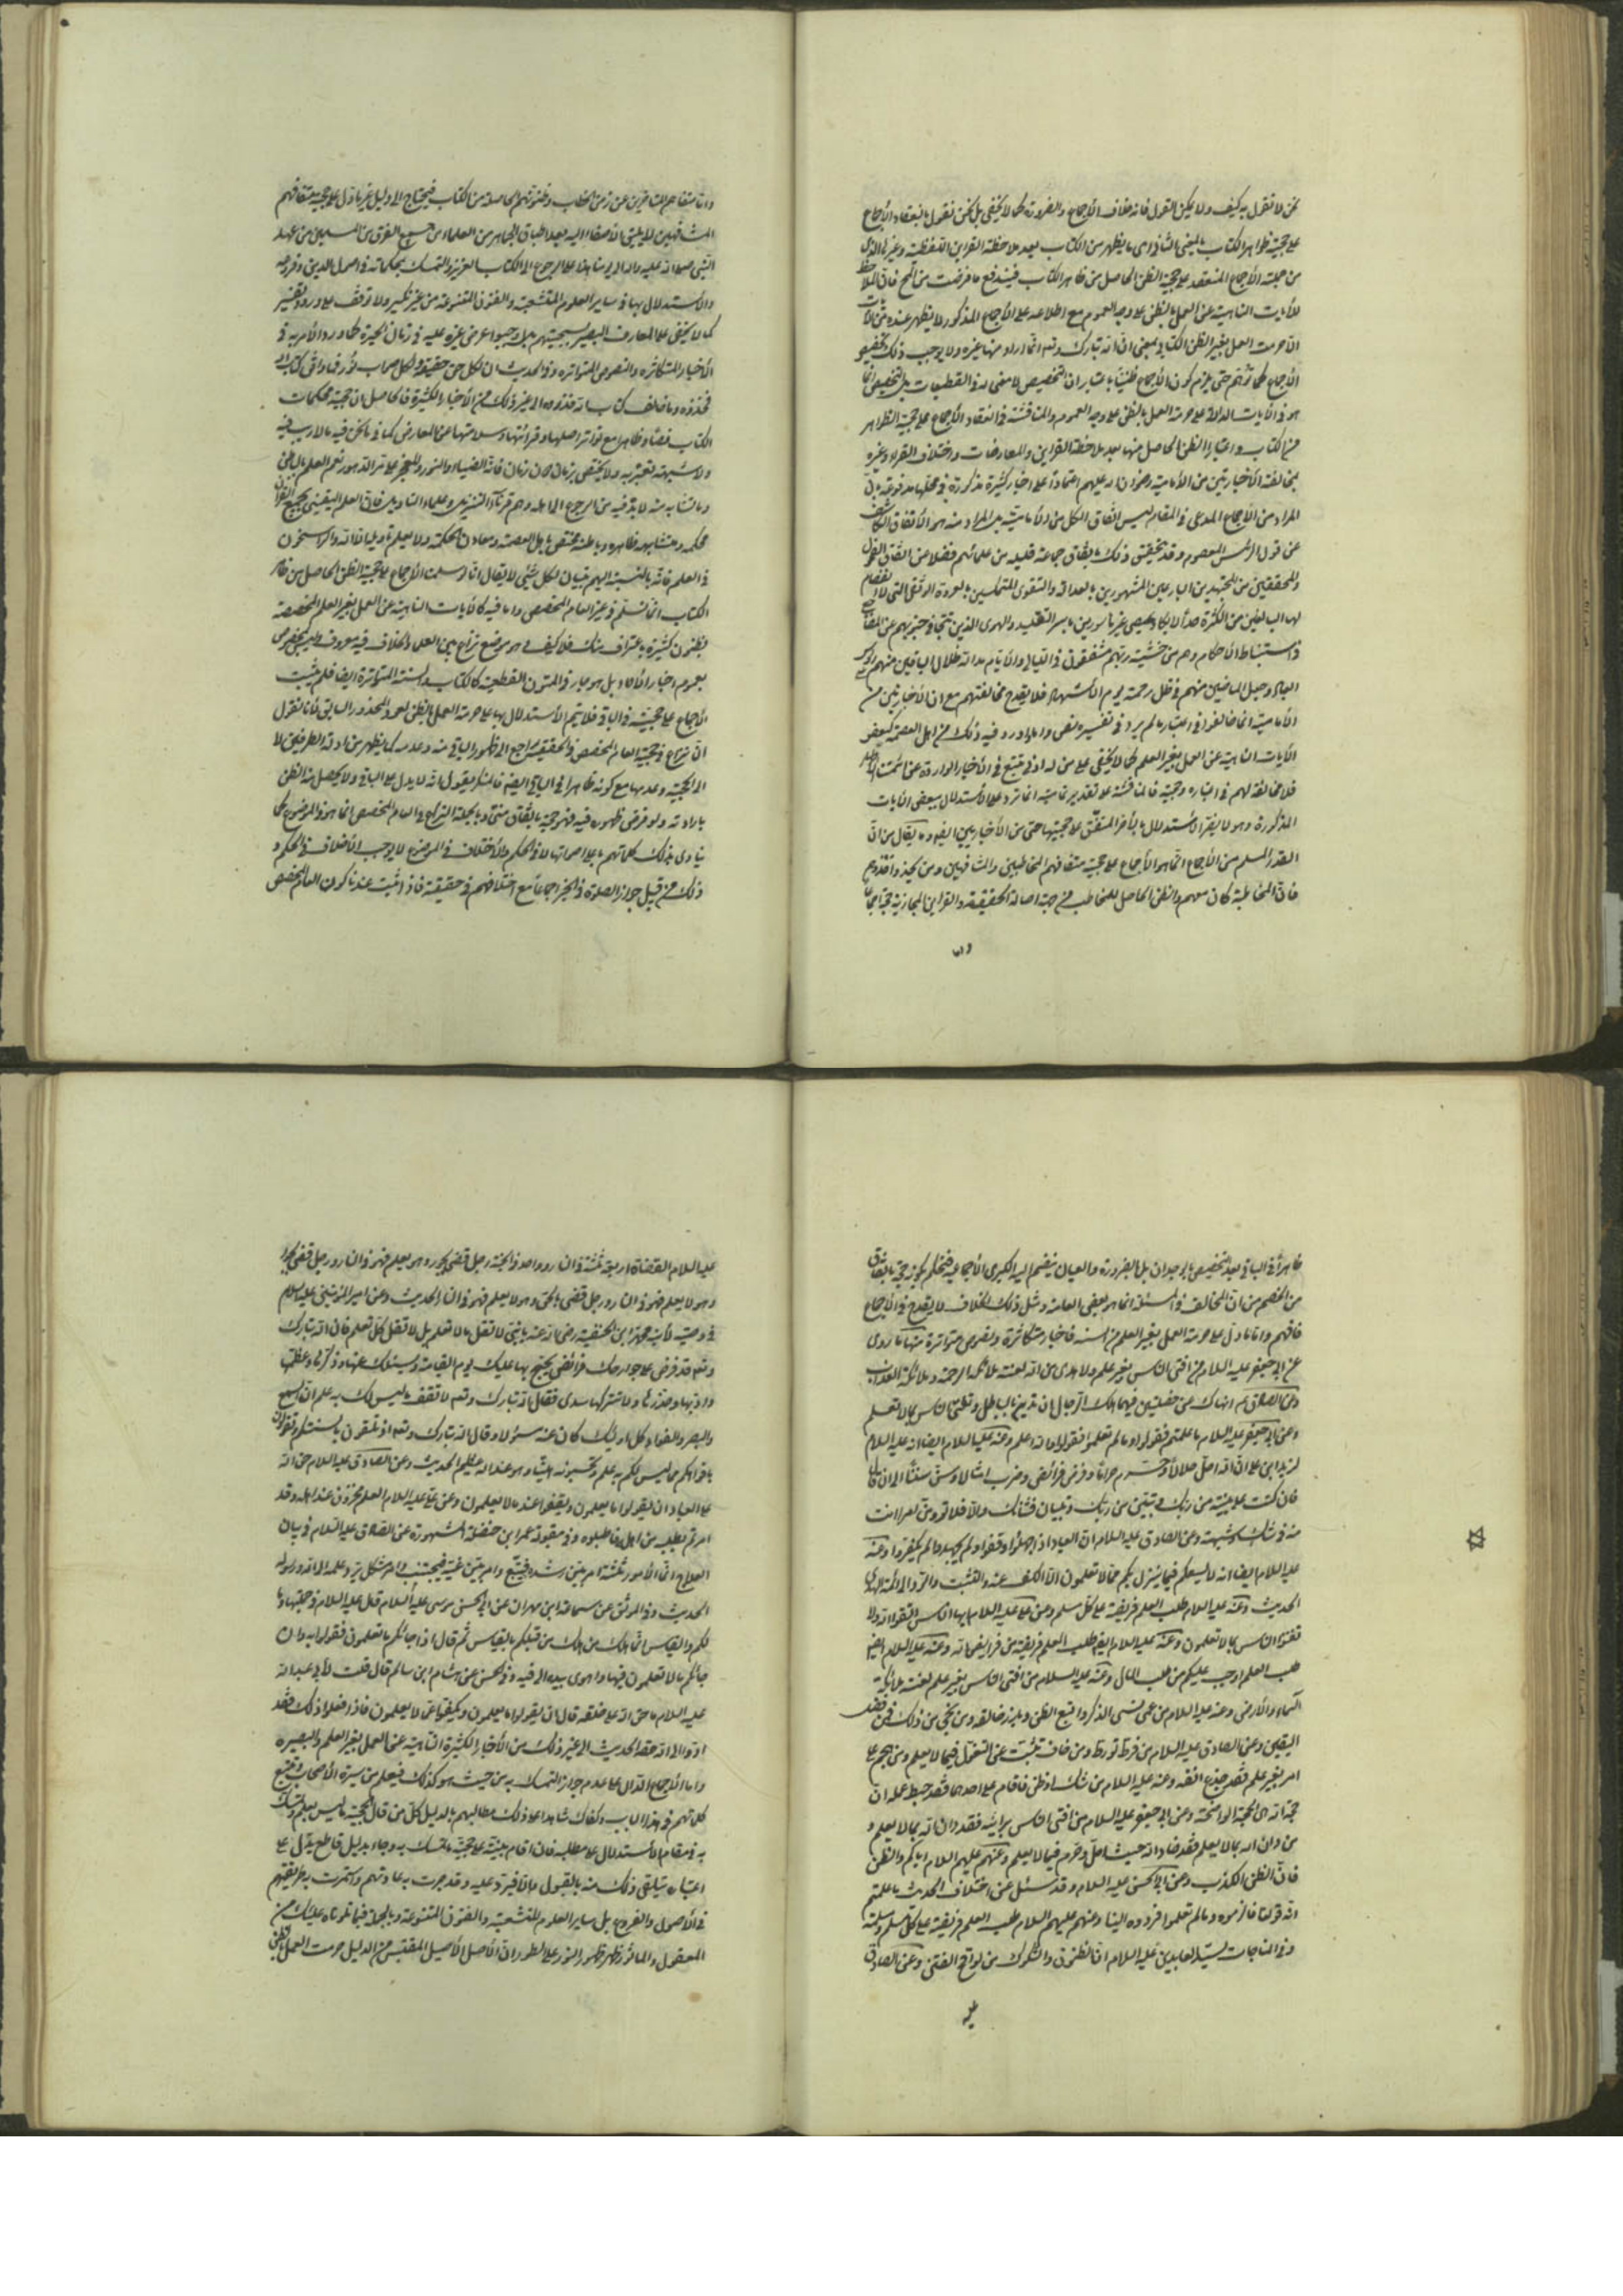 نحن لا نقول به كيف ولا يمكن القول فانه خلاف الأجماع والضرورة كما لا يخفى بل نحن نقول بانعقاد الأجماع
على حجية ظواهر الكتاب بالمعنى الثاني اى ما يظهر من الكتاب بعد ملاحظة القراين اللفظية وغيرها الذى
من جملة الأجماع المنعقد على حجية الظن الحاصل من ظاهر الكتاب فيندفع ما فرضت من
للآيات الناهية عن العمل بالظن على وجه العموم مع اطلاعه على الأجماع المذكور لا يظهر عنده من الآيات
الا حرمت العمل بغير الظن الكتابى بمعنى ان الله تبارك وتعالى انما اراد منها غيره ولا يوجب ذلك تخصيص
الأجماع كما توهم حتى يلزم كون الأجماع ظنيا باعتبار ان التخصيص لا معنى له فى القطعيات بل التخصيص انما
هو فى الآيات الدالة على حرمة العمل بالظن على وجه العموم والمناقشة فى انعقاد الأجماع على حجية الظواهر
من الكتاب واعتبار الظن الحاصل منها بعد ملاحظة القراين والمعارضات واختلاف القراء وغيره
بمخالفة الأخباريين من الأمامية رضوان الله عليهم اعتمادا على اخبار كثيرة مذكورة فى محلها مدفوعة بان
المراد من الأجماع المدعى فى المقام ليس اتفاق الكل من الأمامية بل المراد منه هو الأتفاق الكاشف
عن قول الرئيس المعصوم وقد يتحقق ذلك باتفاق جماعة قليلة من علمائهم فضلا عن اتفاق الفحول
والمحققين من المجتهدين البارعين المشهورين بالعدالة والتقوى المتمسكين بالعروة الوثقى التى لا انفصام
لها البالغين من الكثرة حدا لا يكاد يحصى غير ماسورين باسر التقليد والهوى الذين تتجافى جنوبهم عن المضاجع
فى استنباط الأحكام وهم من خشية ربهم مشفقون فى الليالى والأيام مد الله ظلال الباقين منهم
وجعل الماضين منهم فى ظل رحمته يوم الأشهاد فلا يقدح مخالفتهم مع ان الأخباريين من
الأمامية انما خالفوا فى اعتبار ما لم يرد فى تفسيره نص واما ما ورد فيه ذلك من اهل العصمة كبعض
الآيات الناهية عن العمل بغير العلم كما لا يخفى على من له ادنى تتبع فى الأخبار الواردة عن ائمتنا
فلا مخالفة لهم فى اعتباره وحجيته فالمناقشة على تقدير تماميته انما ترد على الأستدلال ببعض الآيات
المذكورة وهو لا يضر الأستدلال بالآخر المتفق على حجيتها حتى من الأخباريين ايضا وما يقال من ان
القدر المسلم من الأجماع انما هو الأجماع على حجية متفاهم المخاطبين والمشافهين ومن يحذو حذوهم
فان المخاطبة كان معهم والظن الحاصل للمخاطب من جهة اصالة الحقيقة والقراين المجازية حجة اجماعا
واما
واما متفاهم المتأخرين عن زمن الخطاب وظنونهم الحاصلة من الكتاب فيحتاج الى دليل غير ما دل على حجية متفاهم
المشافهين لا يليق بالأصغاء اليه بعد اطباق الجماهير من العلماء من جميع الفرق من المسلمين من عهد
النبى صلى الله عليه واله الى يومنا هذا على الرجوع الى الكتاب العزيز والتمسك بمحكماته فى اصول الدين وفروعه
والأستدلال بها فى ساير العلوم المتشعبة والفنون المتنوعة من غير نكير ولا توقف على ورود تفسير
كما لا يخفى على العارف البصير بسجيتهم بل اوجبوا عرض غيره عليه فى زمان الحيرة كما ورد الأمر به فى
الأخبار المتكاثرة والنصوص المتواترة وفى الحديث ان لكل حق حقيقة ولكل صواب نورا فما وافق كتاب الله
فخذوه وما خالف كتاب الله فذروه الى غير ذلك من الأخبار الكثيرة فالحاصل ان حجية محكمات
الكتاب نصا وظاهرا مع تواتر اصلها وقرائتها وسلامتها عن المعارض كما فى ما نحن فيه مما لا ريب فيه
ولا شبهة تعتريه ولا يختص بزمان دون زمان فانه الضياء والنور والمعجز على مر الدهور نعم العلم بالباطن
وما تشابه منه لا بد فيه من الرجوع الى اهله وهم قرناء التنزيل وعلماء التاويل فان العلم اليقينى بجميع القران
محكمه ومتشابهه ظاهره وباطنه مختص باهل العصمة ومعادن الحكمة ولا يعلم تاويله الا الله والراسخون
فى العلم فانه بالنسبة اليهم تبيان لكل شيئ لا يقال انا لو سلمنا الأجماع على حجية الظن الحاصل من ظاهر
الكتاب انما نسلم فى غير العام المخصص واما فيه كالآيات الناهية عن العمل بغير العلم المخصصة
بظنون كثيرة باعتراف منك فلا كيف وهو موضع نزاع بين العلماء والخلاف فيه معروف
بعموم اخبار الآحاد بل هو جار فى المتون القطعية كالكتاب والسنة المتواترة ايضا فلم يثبت
الأجماع على حجيته فى الباقى فلا يتم الأستدلال بها على حرمة العمل بالظن لعود المحذور السابق فانا نقول
ان نزاع فى حجية العام المخصص فى الحقيقة راجع الى ظهوره الباقى منه وعدمه كما يظهر من ادلة الطرفين لا
الى الحجية وعدمها مع كونه ظاهرا فى الباقى ايضا فالمنكر يقول انه لا يدل على الباقى ولا يحصل منه الظن
بارادته ولو فرض ظهوره فيه فهو حجة باتفاق منى ومنه وبالجملة النزاع فى العام المخصص انما هو فى الموضوع كما
ينادى بذلك كلماتهم باعلى اصواتها لا فى الحكم والأختلاف فى الموضوع لا يوجب الأختلاف فى الحكم و
ذلك من قبيل جواز الصلوة فى الخز اجماعا مع اختلافهم فى حقيقته فاذا ثبت عندنا كون العام المخصص
ظاهرا فى الباقى بعد تخصيص بالوجدان بل بالضرورة والعيان ينضم اليه الكبرى الأجماعية فيتحكم بكونه حجة باتفاق
من الخصم من ان المخالف فى المسئلة انما هو بعض العامة ومثل ذلك الخلاف لا يقدح فى الأجماع
فافهم واما ما دل على حرمة العمل بغير العلم من السنة فاخبار متكاثرة ونصوص متواترة منها ما روى
عن ابى جعفر عليه السلام من افتى الناس بغير علم ولا هدى من الله لعنته ملائكة الرحمة وملائكة العذاب
وعن الصادق ع انهاك عن خصلتين فيهما هلك الرجال ان تدين بالباطل وتفتى الناس بما لا تعلم
وعن ابى جعفر عليه السلام ما علمتم فقولوا وما لم تعلموا فقولوا الله اعلم وعنه عليه السلام ايضا انه عليه السلام
لزيد ابن على ان الله احل حلالا وحرم حراما وفرض فرائض وضرب امثالا وسن سننا الى ان قال
فان كنت على بينة من ربك ويقين من ربك وتبيان فشانك والا فلا ترو من امرا انت
منه فى شك وشبهة وعن الصادق عليه السلام ان العباد اذا جهلوا وقفوا ولم يجحدوا لم يكفروا وعنه
عليه السلام ايضا انه لا يسعكم فيما ينزل بكم مما لا تعلمون الا الكف عنه والتثبت والرد الى ائمة الهدى
الحديث وعنه عليه السلام طلب العلم فريضة على كل مسلم وعن على عليه السلام ايها الناس اتقوا الله ولا
تفتوا الناس بما لا تعلمون وعنه عليه السلام ايضا طلب العلم فريضة من فرايض الله وعنه عليه السلام ايضا
طلب العلم اوجب عليكم من طلب المال وعنه عليه السلام من افتى الناس بغير علم لعنته ملائكة
السماء والأرض وعنه عليه السلام من عمى نسى الذكر واتبع الظن وبارز خالقه ومن نجى من ذلك فمن فضل
اليقين وعن الصادق عليه السلام من فرط تورط ومن خاف تثبت عن التوغل فيما لا يعلم ومن هجم على
امر بغير علم فقد جذع انفه وعنه عليه السلام من شك او ظن فاقام على احدهما فقد حبط عمله ان
حجة الله هى الحجة الواضحة وعن ابى جعفر عليه السلام من افتى الناس برايه فقد دان الله بما لا يعلم و
من دان الله بما لا يعلم فقد ضاد الله حيث احل وحرم فيما لا يعلم وعنهم عليهم السلام اياكم والظن
فان الظن الكذب وعن ابى الحسن عليه السلام وقد سئل عن اختلاف الحديث ما علمتم
انه قولنا فالزموه وما لم تعلموا فردوه الينا وعنهم عليهم السلام طلب العلم فريضة على كل مسلم ومسلمة
وفى المناجات لسيد العابدين عليه السلام ان الظنون والشكوك من لواقح الفتن وعن الصادق
عليه
عليه السلام القضاة اربعة ثلثة فى النار وواحد فى الجنة رجل قضى بجور وهو يعلم فهو فى النار ورجل قضى بجور
وهو لا يعلم فهو فى النار ورجل قضى بالحق وهو لا يعلم فهو فى النار الحديث وعن امير المؤمنين عليه السلام
فى وصيته لأبنه محمد ابن الحنفية رضى الله عنه يا بنى لا تقل ما لا تعلم بل لا تقل كل ما تعلم فان الله تبارك
وتعالى قد فرض على جوارحك فرائض يحتج بها عليك يوم القيامة ويسئلك عنها وذكرها ووعظها
وادبها وحذرها ولم يتركها سدى فقال الله تبارك وتعالى لا تقف ما ليس لك به علم ان السمع
والبصر والفؤاد كل اولئك كان عنه مسئولا وقال الله تبارك وتعالى اذ تلقونه بالسنتكم وتقولون
بافواهكم ما ليس لكم به علم وتحسبونه هينا وهو عند الله عظيم الحديث وعن الصادق عليه السلام حق الله
على العباد ان يقولوا ما يعلمون ويقفوا عند ما لا يعلمون وعن على عليه السلام العلم مخزون عند اهله وقد
امرتم بطلبه من اهله فاطلبوه وفى مقبولة عمر ابن حنظلة المشهورة عن الصادق عليه السلام فى بيان
العلاج انما الأمور ثلثة امر بين رشده فيتبع وامر بين غيه فيجتنب وامر مشكل يرد علمه الى الله ورسوله
الحديث وفى الموثق عن سماعة ابن مهران عن ابى الحسن موسى عليه السلام قال عليه السلام
لكم والقياس انما هلك من هلك من قبلكم بالقياس ثم قال اذا جائكم ما تعلمون فقولوا به وان
جائكم ما لا تعلمون فيها واهوى بيده الى فيه وفى الحسن عن هشام ابن سالم قال قلت لأبى عبد الله
عليه السلام ما حق الله على خلقه قال ان يقولوا ما يعلمون ويكفوا عما لا يعلمون فاذا فعلوا ذلك فقد
ادوا الى الله حقه الحديث الى غير ذلك من الأخبار الكثيرة الناهية عن العمل بغير العلم والبصيرة
واما الأجماع الدال على عدم جواز التمسك به من حيث هو كذلك فيعلم من سيرة الأصحاب وتتبع
كلماتهم فى هذا الباب وكفاك شاهدا على ذلك مطالبهم بالدليل كل من قال بحجية ما ليس بعلم وتمسك
به فى مقام الأستدلال على مطلبه فان اقام بينة على حجية ما تمسك به وجاء بدليل قاطع يدل على
اعتباره تيلقى ذلك منه بالقبول والا فيرد عليه وقد جرت به عادتهم واستمرت به طريقتهم
فى الأصول والفروع بل ساير العلوم المتشعبة والفنون المتنوعة وبالجملة فيما تلوناه عليك من
المعقول والماثور ظهر ظهور النور على الطور ان الأصل الأصيل المقتبس من الدليل حرمت العمل بالظن